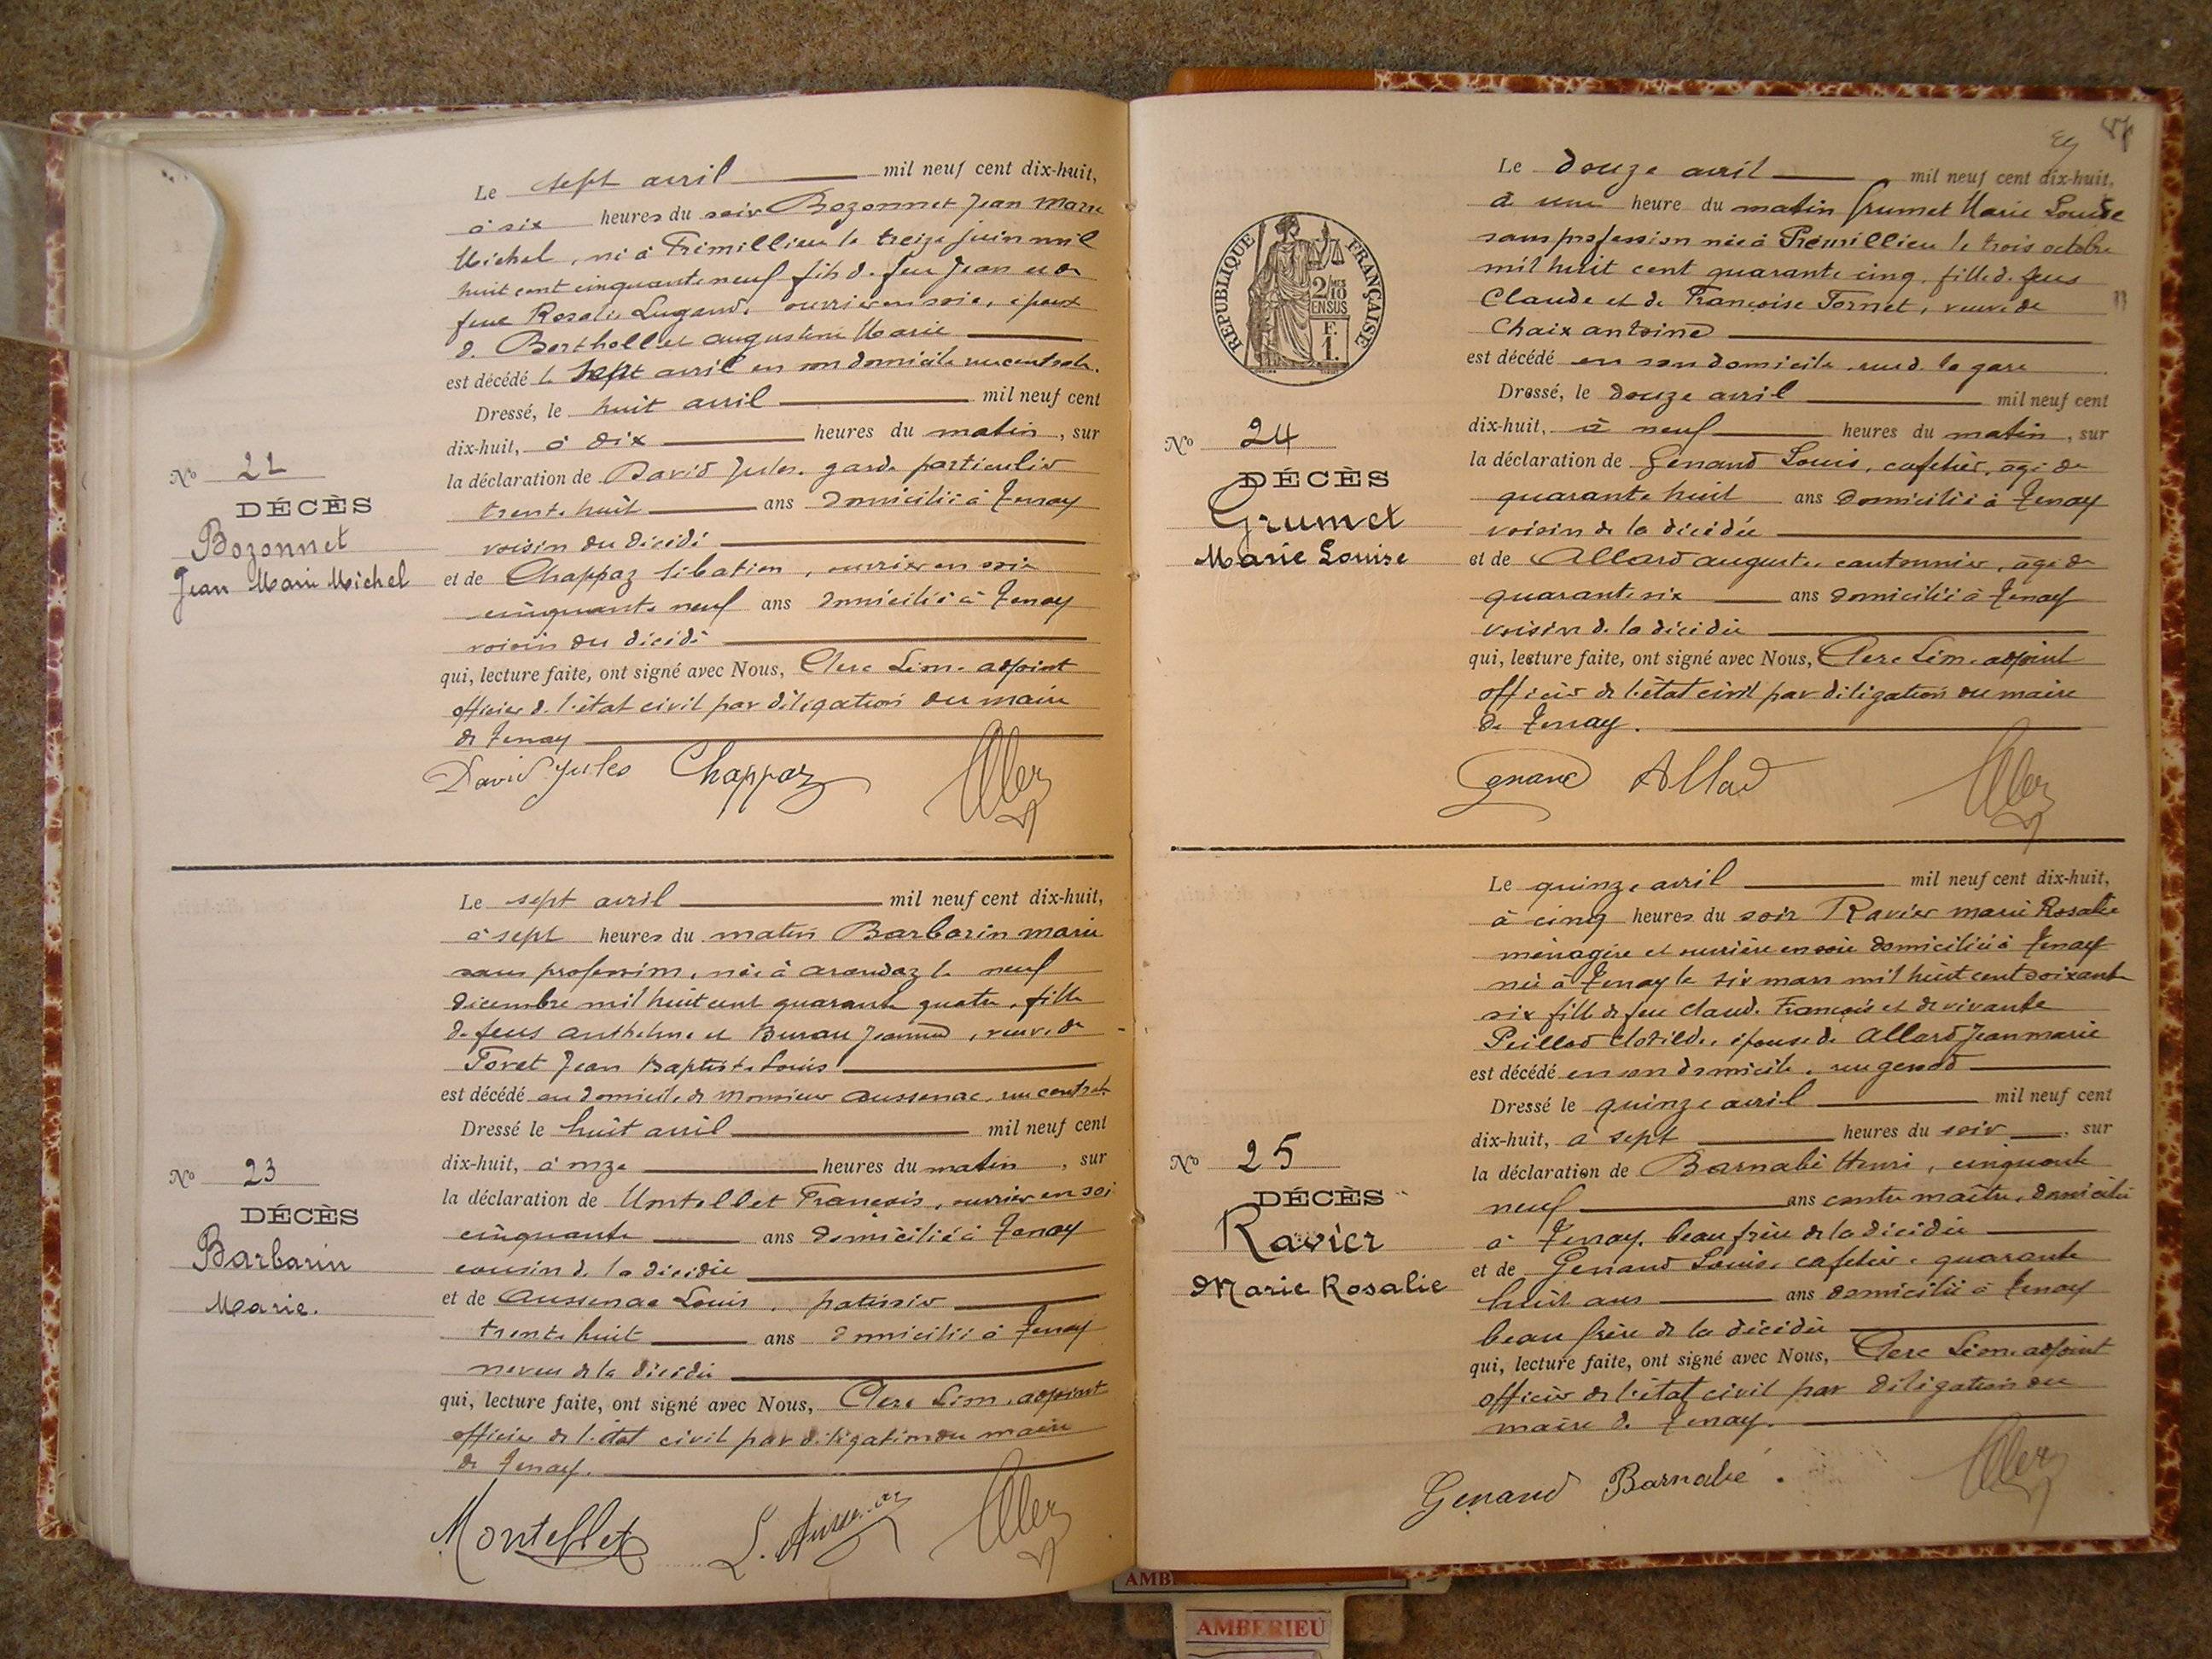 Le sept avril mil neuf cent dix-huit,
à six heures du soir Bozonnet Jean Marie
Michel, né à Prémillieu le treize juin mil
huit cent cinquante neuf fils de feu Jean et de
feue Rosalie Lugand, ouvrier en soie, époux
de Berthollet augustine Marie
est décédé le sept avril en son domicile rue centrale.
Dressé, le huit avril mil neuf cent
dix-huit, à dix heures du matin, sur
la déclaration de David Jules. garde particulier
trente huit ans domicilié à Tenay
voisin du décédé
et de Chappaz Sébatien, ouvrier en soie
cinquante neuf ans domicilié à Tenay
voisin du décédé
qui, lecture faite, ont signé avec Nous, Clerc Léon. adjoint
officier de l'état civil par délégation du maire
de Tenay
David Jules Chappaz
No 22
DÉCÈS
Bozonnet
Jean Marie Michel
Le sept avril mil neuf cent dix-huit,
à sept heures du matin Barbarin marie
sans profession, née à arandaz le neuf
décembre mil huit cent quarante quatre, fille
de feus anthelme et Jeanne, veuve de
Toret Jean Baptiste Louis
est décédé au domicile de Monsieur aussenac, rue centrale
Dressé le huit avril mil neuf cent
dix-huit, à onze heures du matin, sur
la déclaration de Montellet François, ouvrier en soie
cinquante ans domicilié à Tenay
cousin de la décédée
et de aussenac Louis, patissier
trente huit ans domicilié à Tenay
neveu de la décédée
qui, lecture faite, ont signé avec Nous, Clerc Léon, adjoint
officier de l'état civil par délégation du maire
de Tenay.
Montellet L. Aussenac
No 23
DÉCÈS
Barbarin
Marie.
87
Le douze avril mil neuf cent dix-huit,
à une heure du matin Grumet Marie Louise
sans profession née à Prémillieu le trois octobre
mil huit cent quarante cinq, fille de feus
Claude et de Françoise Tornet, veuve de
Chaix antoine
est décédé en son domicile, rue de la gare
Dressé, le douze avril mil neuf cent
dix-huit, à neuf heures du matin, sur
la déclaration de Genand Louis, cafetier, âgé de
quarante huit ans domicilié à Tenay
voisin de la décédée
et de Allard auguste, cantonnier, âgé de
quarante six ans domicilié à Tenay
voisin de la décédée
qui, lecture faite, ont signé avec Nous, Clerc Léon, adjoint
officier de l'état civil par délégation du maire
de Tenay.
Genand Allard
RÉPUBLIQUE FRANÇAISE
2/10 MES
EN SUS
F.
1.
No 24
DÉCÈS
Grumet
Marie Louise
Le quinze avril mil neuf cent dix-huit,
à cinq heures du soir Ravier marie Rosalie
ménagère et ouvrière en soie domiciliée à Tenay
née à Tenay le six mars mil huit cent soixante
six fille de feu Claude François et de vivante
Peillod Clotilde, épouse de Allard Jean marie
est décédé en son domicile, rue genod
Dressé le quinze avril mil neuf cent
dix-huit, à sept heures du soir, sur
la déclaration de Barnabé Henri, cinquante
neuf ans contre maître, domicilié
à Tenay, beau frère de la décédée
et de Genand Louis, cafetier, quarante
huit ans ans domicilié à Tenay
beau frère de la décédée
qui, lecture faite, ont signé avec Nous, Clerc Léon adjoint
officier de l'état civil par délégation du
maire de Tenay.
Genand Barnabé.
No 25
DÉCÈS
Ravier
Marie Rosalie
AMBERIEU